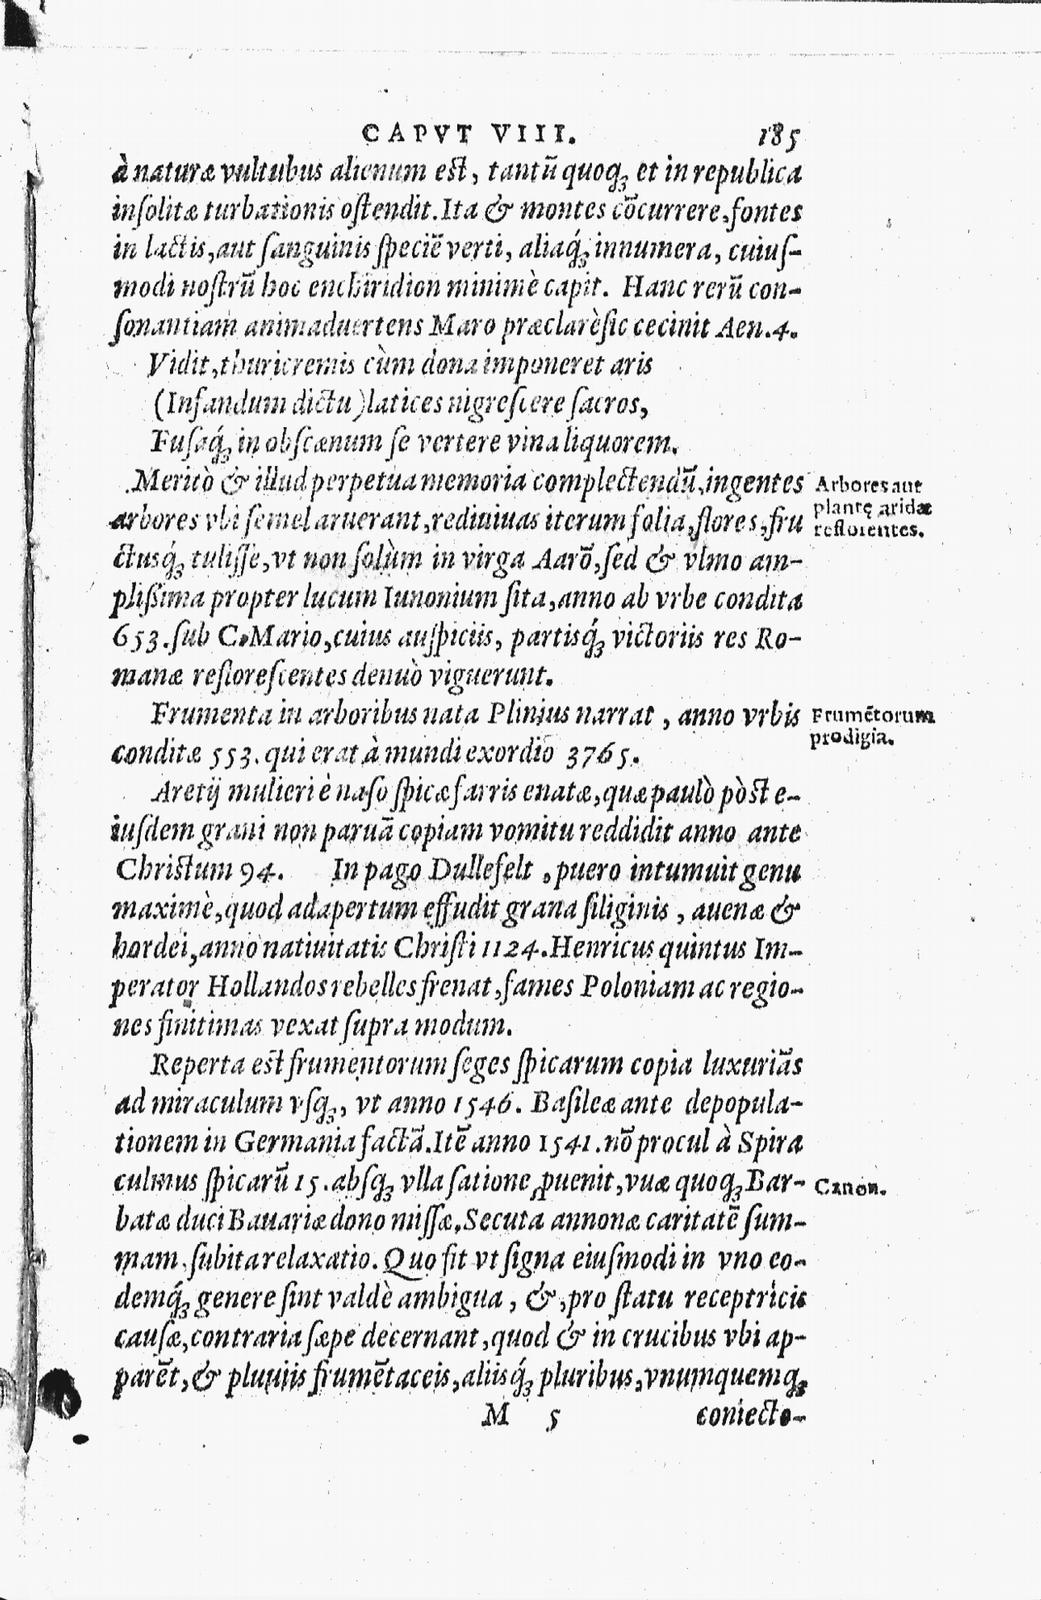 CAPVT VIII. 185
à naturæ vultubus alienum est, tantū quoqꝫ et in republica
insolitæ turbationis ostendit. Ita & montes cōcurrere, fontes
in lactis, aut sanguinis speciē verti, aliaq́ꝫ innumera, cuius-
modi nostrū hoc enchiridion minimè capit. Hanc rerū con-
sonantiam animaduertens Maro præclarè sic cecinit Aen. 4.
Vidit, thuricremis cùm dona imponeret aris
(Infandum dictu) latices nigrescere sacros,
Fusaq́ꝫ in obscænum se vertere vina liquorem.
Meritò & illud perpetua memoria complectendū, ingentes
arbores vbi semel aruerant, rediuiuas iterum folia, flores, fru
ctusq́ꝫ tulisse, vt non solùm in virga Aarō, sed & vlmo am-
plissima propter lucum Iunonium sita, anno ab vrbe condita
653. sub C. Mario, cuius auspiciis, partisq́ꝫ victoriis res Ro-
manæ reflorescentes denuò viguerunt.
Arbores aut
plantę aridæ
reflorentes.
Frumenta in arboribus nata Plinius narrat, anno vrbis
conditæ 553. qui erat à mundi exordio 3765.
Frumētorum
prodigia.
Aretij mulieri è naso spicæ farris enatæ, quæ paulò pòst e-
iusdem grani non paruā copiam vomitu reddidit anno ante
Christum 94. In pago Dullefelt, puero intumuit genu
maximè, quod adapertum effudit grana siliginis, auenæ &
hordei, anno natiuitatis Christi 1124. Henricus quintus Im-
perator Hollandos rebelles frenat, fames Poloniam ac regio-
nes finitimas vexat supra modum.
Reperta est frumentorum seges spicarum copia luxuriās
ad miraculum vsqꝫ, vt anno 1546. Basileæ ante depopula-
tionem in Germania factā. Itē anno 1541. nō procul à Spira
culmus spicarū 15. absqꝫ vlla satione ꝓuenit, vuæ quoqꝫ Bar-
batæ duci Bauariæ dono missæ. Secuta annonæ caritatē sum-
mam, subita relaxatio. Quo fit vt signa eiusmodi in vno eo-
demq́ꝫ genere sint valdè ambigua, &, pro statu receptricis
causæ, contraria sæpe decernant, quod & in crucibus vbi ap-
parēt, & pluuiis frumētaceis, aliisq́ꝫ pluribus, vnumquemqꝫ
Canon.
M 5 coniecto-